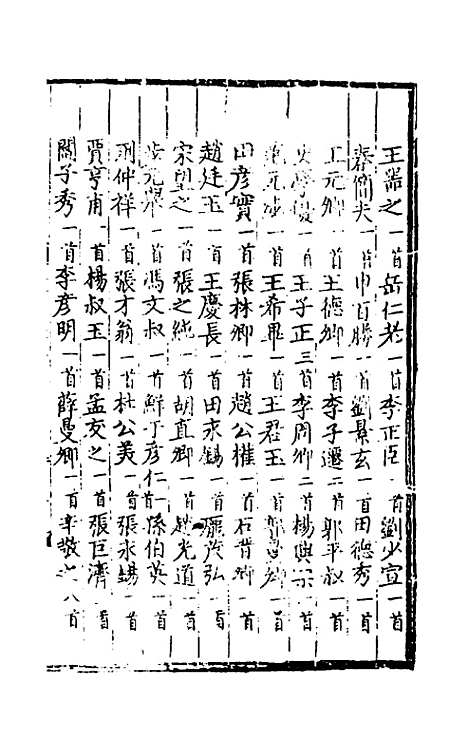 王器之一首岳仁老一首李正臣一首劉少宣一首
秦簡夫一首申百勝一首劉景玄一首田德秀一首
王元卿一首王德卿一首李子遷一首郭平叔一首
史學優一首王子正三首李周卿二首楊興宗一首
元 一首王希畢一首王君玉一首郭 卿一首
田彥實一首張林卿一首趙公權一首石晉卿一首
趙廷玉一首王慶長一首田永錫一首 茂弘一首
宋望之一首張之純一首胡直卿一首趙光道一首
步元舉一首馮文叔一首鮮于彥仁一首孫伯英一首
劉仲祥一首張才翁一首杜公美一首張永錫一首
賈亨甫一首楊叔玉一首孟友之一首張巨濟一首
關子秀一首李彥明一首薛曼卿一首辛敬之八首